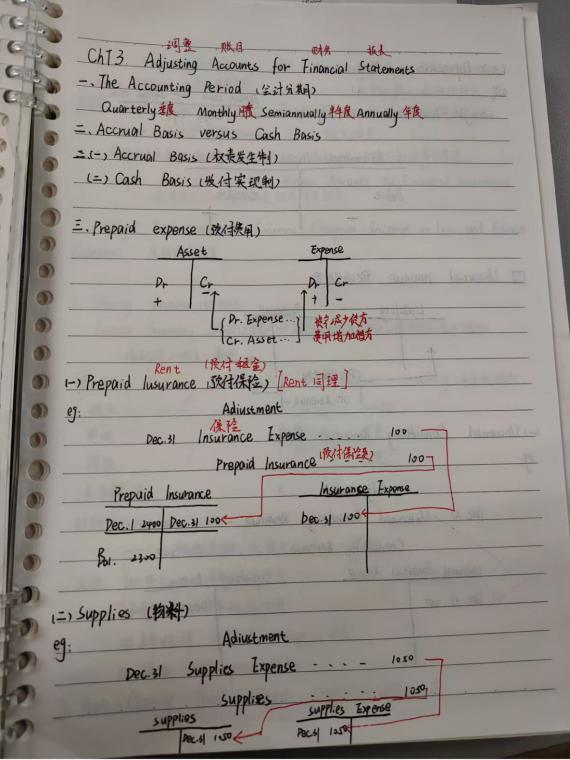 调整 账目 财务 报表
Ch73 Adjusting Accounts for Financial Statements
一、The Accounting Period (会计分期)
Quarterly 季度 Monthly 月度 Semiannually 半年度 Annually 年度
二、Accrual Basis versus Cash Basis
(一) Accrual Basis (权责发生制)
(二) Cash Basis (收付实现制)
三、Prepaid expense (预付费用)
Asset Expense
Dr Cr Dr Cr
+ - + -
Dr. Expense... 资产减少贷方
Cr. Asset... 费用增加借方
Rent (预付租金)
(一) Prepaid Insurance (预付保险) [Rent 同理]
eg: Adjustment
保险
Dec.31 Insurance Expense ..... 100
Prepaid Insurance (预付保险费) 100
Prepaid Insurance Insurance Expense
Dec.1 2400 Dec.31 100 Dec.31 100
Bal. 2300
(二) Supplies (物料)
eg: Adjustment
Dec.31 Supplies Expense .... 1050
Supplies ..... 1050
Supplies Supplies Expense
Dec.31 1050 Dec.31 1050